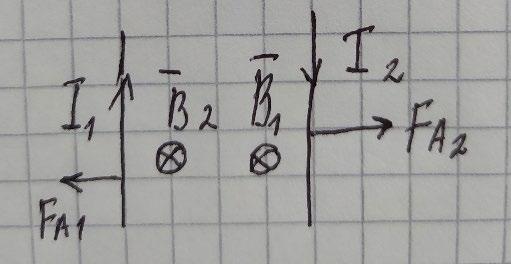 I₁ B̅₂ B̅₁ I₂
F_A₁ F_A₂